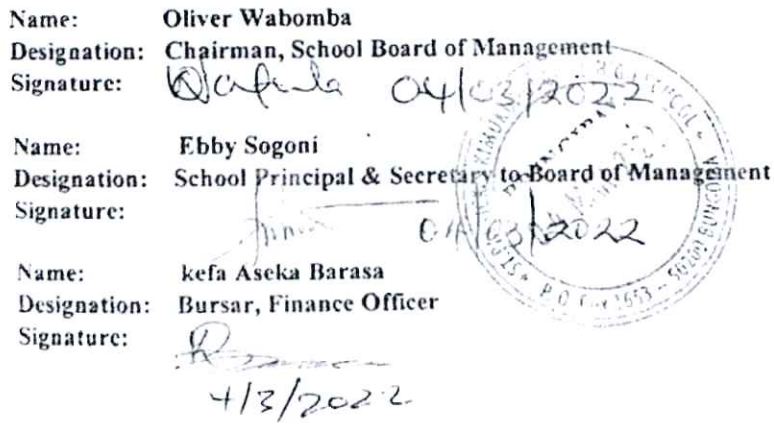 Name: Oliver Wabomba
Designation: Chairman, School Board of Management
Signature:
04/03/2022
Name: Ebby Sogoni
Designation: School Principal & Secretary to Board of Management
Signature:
04/03/2022
Name: kefa Aseka Barasa
Designation: Bursar, Finance Officer
Signature:
4/3/2022
P.O. Box 1653 - 50200 BUNGOMA